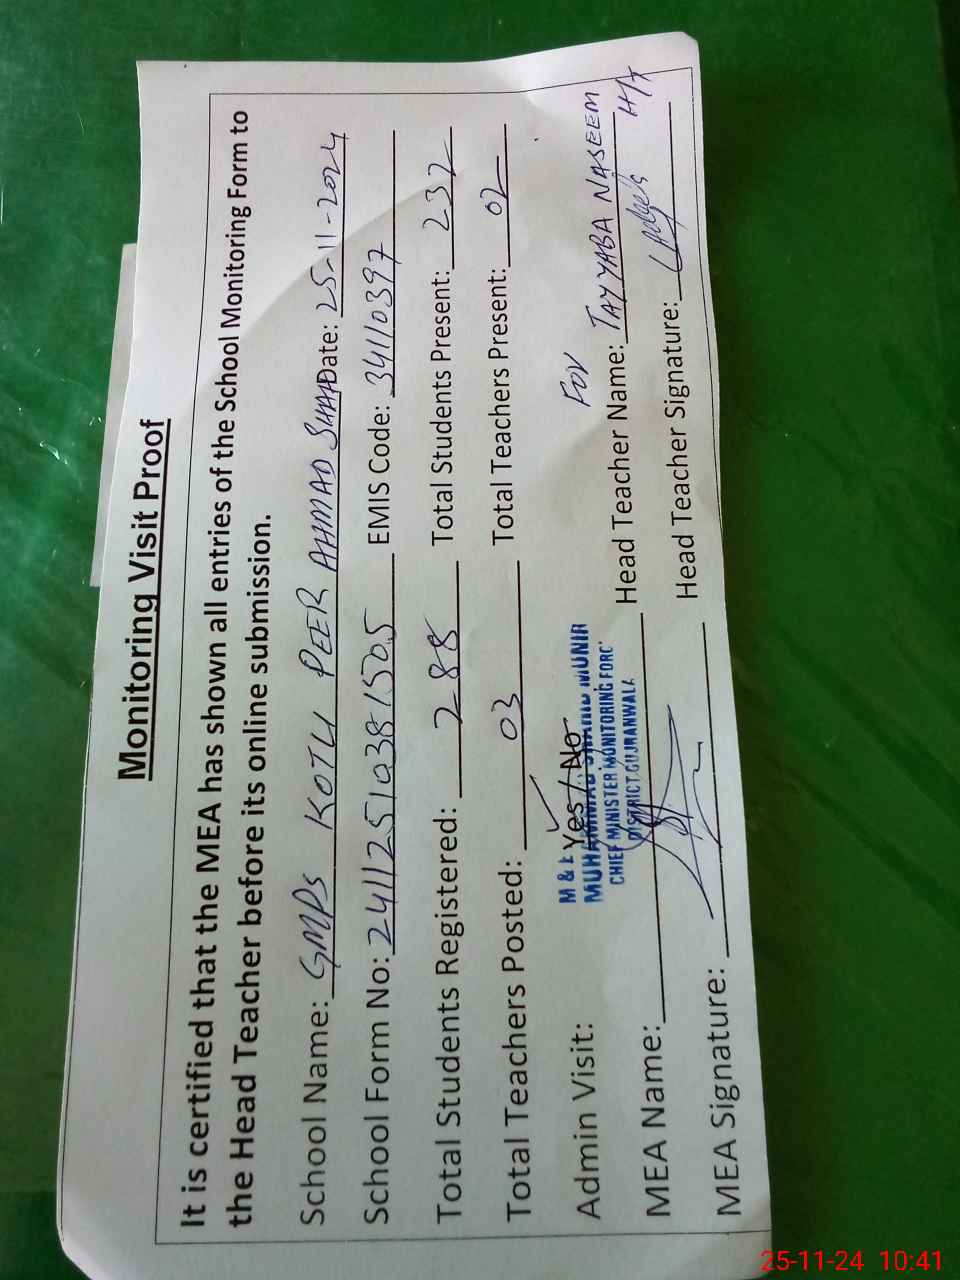 Monitoring Visit Proof
It is certified that the MEA has shown all entries of the School Monitoring Form to
the Head Teacher before its online submission.
School Name: GMPS KOTLI PEER AHMAD SHAH Date: 25-11-2024
School Form No: 24112510381505 EMIS Code: 34110397
Total Students Registered: 288 Total Students Present: 232
Total Teachers Posted: 03 Total Teachers Present: 02
Admin Visit: Yes / No
M & E
MUHAMMAD MUNIR
CHIEF MINISTER MONITORING FORC
DISTRICT GUJRANWALA
For
MEA Name: Head Teacher Name: TAYYABA NASEEM H/T
MEA Signature: Head Teacher Signature:
25-11-24 10:41